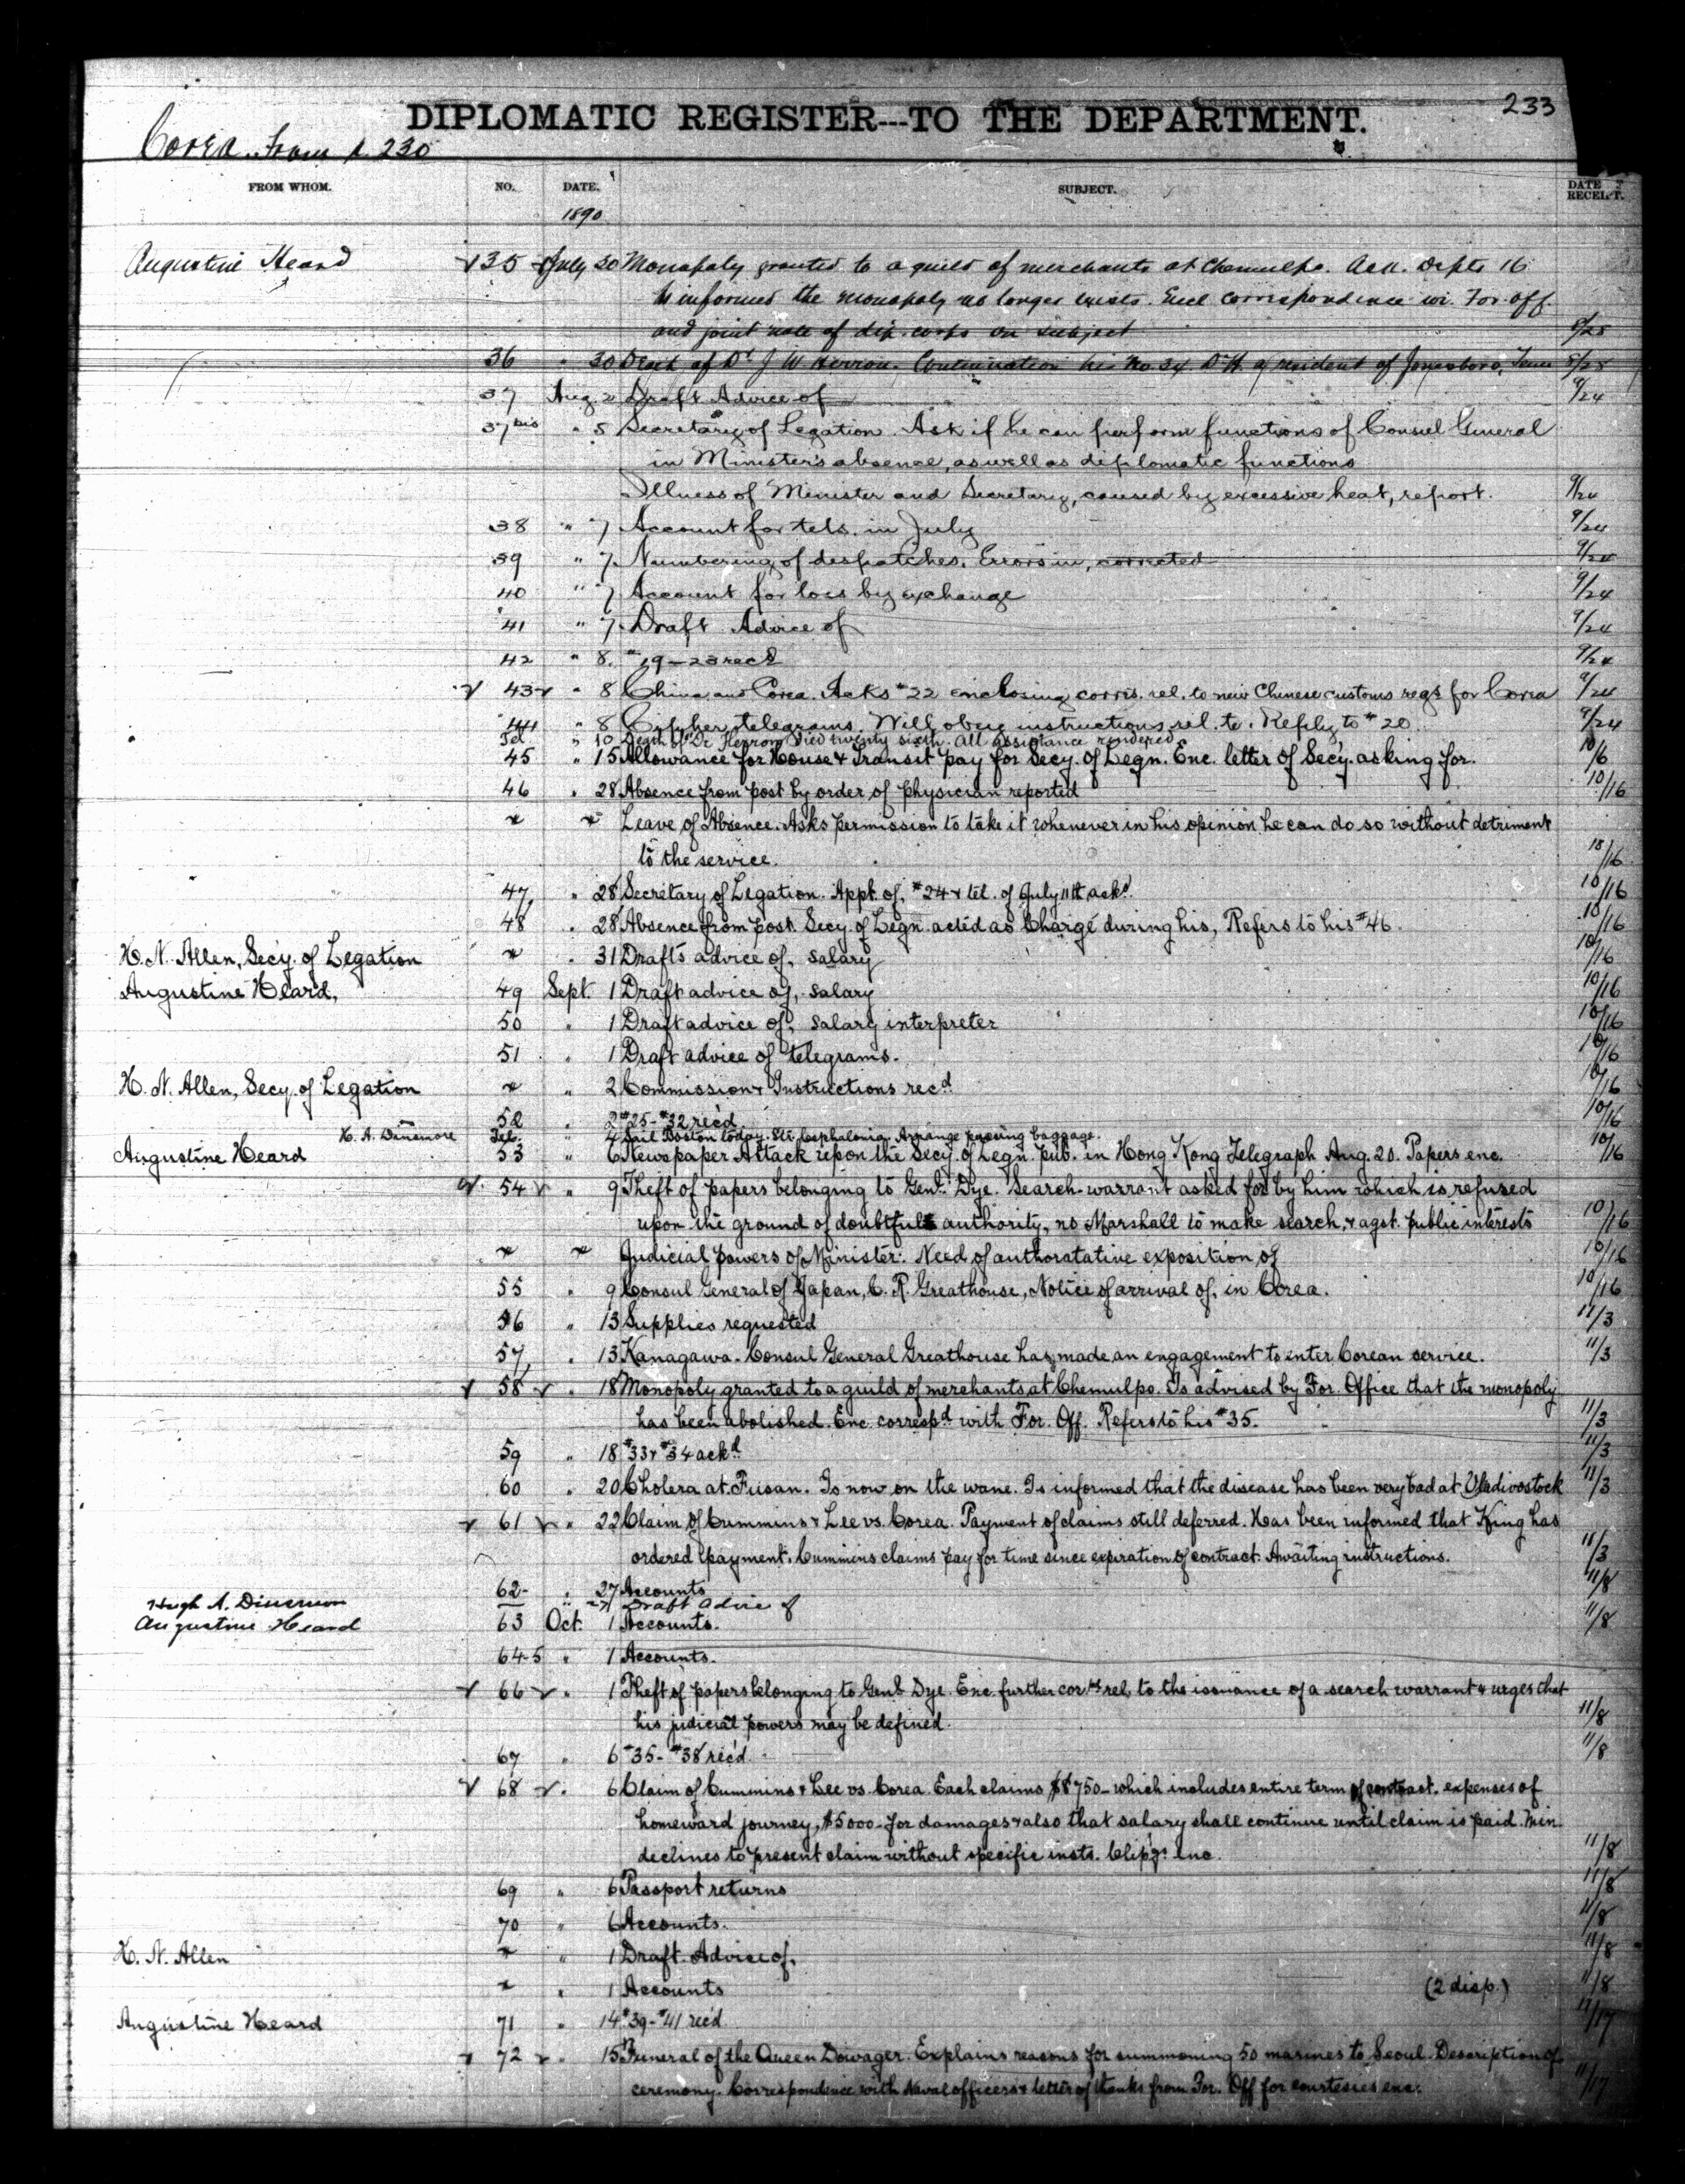 233
DIPLOMATIC REGISTER---TO THE DEPARTMENT.
Corea. from p. 230
FROM WHOM. NO. DATE. SUBJECT. DATE RECEIPT.
1890
Augustine Heard 35 July 30 Monopoly granted to a guild of merchants at Chemulpo. Ack. Depts 16
Is informed the monopoly no longer exists. Encl correspondence wi. For. off.
and joint note of dip. corps on subject
36 " 30 Death of Dr J W Herron. Continuation his No 34 Dr H. a resident of Jonesboro, Tenn
37 Aug. 2 Draft Advice of 9/24
37 bis " 5 Secretary of Legation. Ask if he can perform functions of Consul General
in Minister's absence, as well as diplomatic functions
Illness of Minister and Secretary, caused by excessive heat, report. 9/24
38 " 7 Account for tels. in July 9/24
39 " 7 Numbering of despatches. Errors in, corrected 9/24
40 " 7 Account for loss by exchange 9/24
41 " 7 Draft Advice of 9/24
42 " 8. #19-23 recd 9/24
43 " 8 China and Corea. Acks #22 enclosing corres. rel. to new Chinese customs regs for Corea 9/24
44 " 8 Cipher telegrams. Will obey instructions rel. to. Reply to #20 9/24
Tel. " 10 Death of Dr Herron died twenty sixth. All assistance rendered
45 " 15 Allowance for House & Transit pay for Secy. of Legn. Enc. letter of Secy. asking for. 10/6
46 " 28 Absence from post by order of physician reported 10/16
" " Leave of Absence. Asks permission to take it whenever in his opinion he can do so without detriment
to the service. 10/16
47 " 28 Secretary of Legation. Appt. of. #24 & tel. of July 11th ackd. 10/16
48 " 28 Absence from post. Secy. of Legn. acted as Chargé during his, Refers to his #46. 10/16
H. N. Allen, Secy. of Legation " " 31 Drafts advice of, salary 10/16
Augustine Heard, 49 Sept. 1 Draft advice of, salary 10/16
50 " 1 Draft advice of, salary interpreter 10/16
51 " 1 Draft advice of telegrams. 10/16
H. N. Allen, Secy. of Legation " " 2 Commission & Instructions recd. 10/16
52 " 2 #25-#32 rec'd. 10/16
H. A. Dinsmore Tel. " 4 Sail Boston today. Str. Cephalonia. Arrange passing baggage.
Augustine Heard 53 " 6 Newspaper Attack upon the Secy. of Legn. pub. in Hong Kong Telegraph Aug. 20. Papers enc. 10/16
54 " 9 Theft of papers belonging to Genl. Dye. Search-warrant asked for by him which is refused
upon the ground of doubtful authority, no Marshall to make search, & agst. public interests 10/16
" " Judicial powers of Minister. Need of authoratative exposition of 10/16
55 " 9 Consul General of Japan, C. R. Greathouse, Notice of arrival of, in Corea. 10/16
56 " 13 Supplies requested 11/3
57 " 13 Kanagawa. Consul General Greathouse has made an engagement to enter Corean service. 11/3
58 " 18 Monopoly granted to a guild of merchants at Chemulpo. Is advised by For. Office that the monopoly
has been abolished. Enc. correspd. with For. Off. Refers to his #35. 11/3
59 " 18 #33 & #34 ackd. 11/3
60 " 20 Cholera at Fusan. Is now on the wane. Is informed that the disease has been very bad at Vladivostock 11/3
61 " 22 Claim of Cummins & Lee vs. Corea. Payment of claims still deferred. Has been informed that King has
ordered payment. Cummins claims pay for time since expiration of contract. Awaiting instructions. 11/3
62 " 27 Accounts 11/8
Hugh A. Dinsmore — " 27 Draft Advice of
Augustine Heard 63 Oct. 1 Accounts. 11/8
64-5 " 1 Accounts.
66 " 1 Theft of papers belonging to Genl. Dye. Enc. further cor. rel. to the issuance of a search warrant & urges that
his judicial powers may be defined. 11/8
67 " 6 #35-#38 rec'd. 11/8
68 " 6 Claim of Cummins & Lee vs. Corea. Each claims $8750- which includes entire term of contract. expenses of
homeward journey, $5000- for damages & also that salary shall continue until claim is paid. Min.
declines to present claim without specific insts. Clip'gs enc. 11/8
69 " 6 Passport returns 11/8
70 " 6 Accounts. 11/8
H. N. Allen " " 1 Draft. Advice of. 11/8
" " 1 Accounts (2 disp.) 11/8
Augustine Heard 71 " 14 #39-#41 rec'd 11/17
72 " 15 Funeral of the Queen Dowager. Explains reasons for summoning 50 marines to Seoul. Description of
ceremony. Correspondence with Naval officers & letter of thanks from For. Off for courtesies enc. 11/17